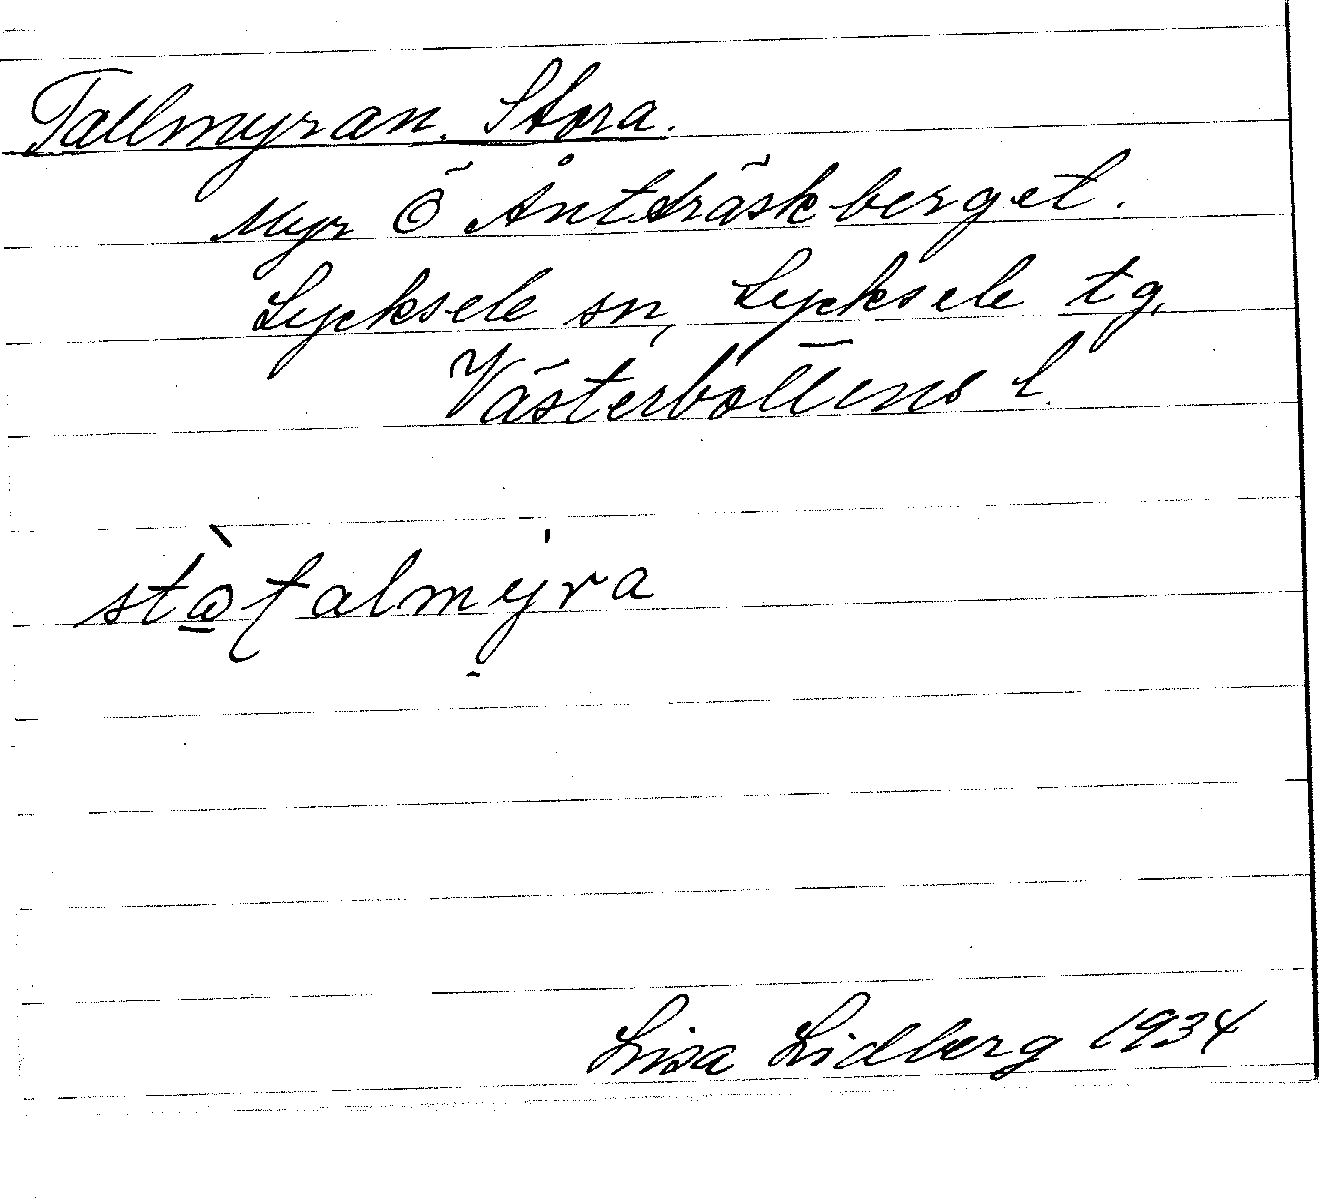 Tallmyran, Stora.
Myr Ö Åntträskberget.
Lycksele sn, Lycksele tg,
Västerbottens l.
Lisa Lidberg 1934